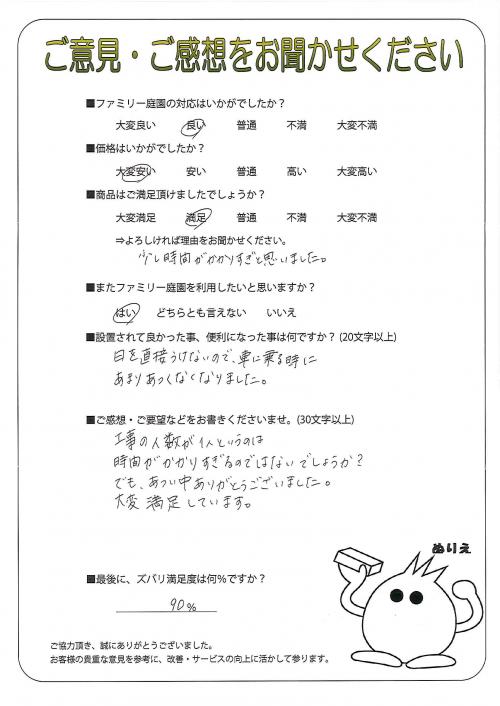 ご意見・ご感想をお聞かせください
■ファミリー庭園の対応はいかがでしたか？
大変良い 良い 普通 不満 大変不満
■価格はいかがでしたか？
大変安い 安い 普通 高い 大変高い
■商品はご満足頂けましたでしょうか？
大変満足 満足 普通 不満 大変不満
⇒よろしければ理由をお聞かせください。
少し時間がかかりすぎと思いました。
■またファミリー庭園を利用したいと思いますか？
はい どちらとも言えない いいえ
■設置されて良かった事、便利になった事は何ですか？(20文字以上)
日を直接うけないので、車に乗る時に
あまりあつくなくなりました。
■ご感想・ご要望などをお書きくださいませ。(30文字以上)
工事の人数が1人というのは
時間がかかりすぎるのではないでしょうか？
でも、あつい中ありがとうございました。
大変満足しています。
ぬりえ
■最後に、ズバリ満足度は何％ですか？
90%
ご協力頂き、誠にありがとうございました。
お客様の貴重な意見を参考に、改善・サービスの向上に活かして参ります。